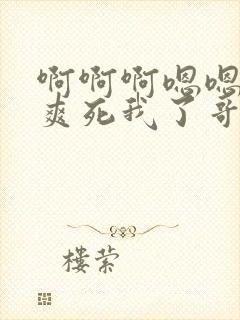 啊啊啊嗯嗯
爽死我了哥
楼萦